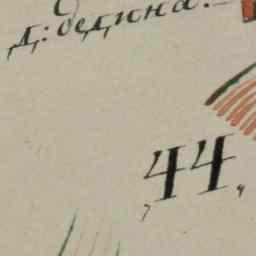 д: бедина.
„44„